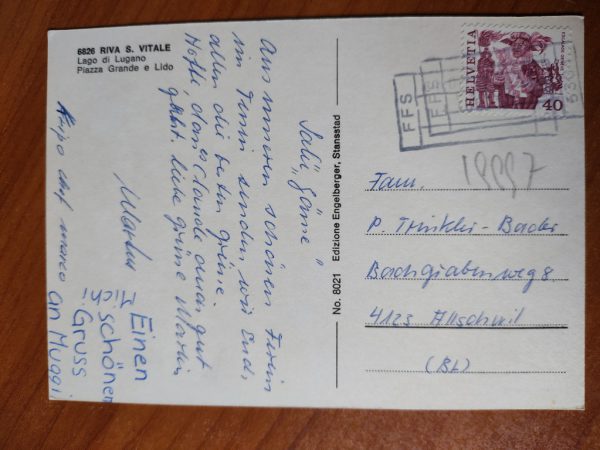 6826 RIVA S. VITALE
Lago di Lugano
Piazza Grande e Lido
Salü
Aus unseren schönen Ferien
im Tessin senden wir Euch
allen die besten Grüsse.
Hoffe, dass es Claude auch gut
geht. Liebe Grüsse Martin
Einen
schönen
Gruss
an Muggi
No. 8021 Edizione Engelberger, Stansstad
HELVETIA
40
FFS
FFS
Fam.
P. Trinkler-Bader
Bachgrabenweg 8
4123 Allschwil
(BL)